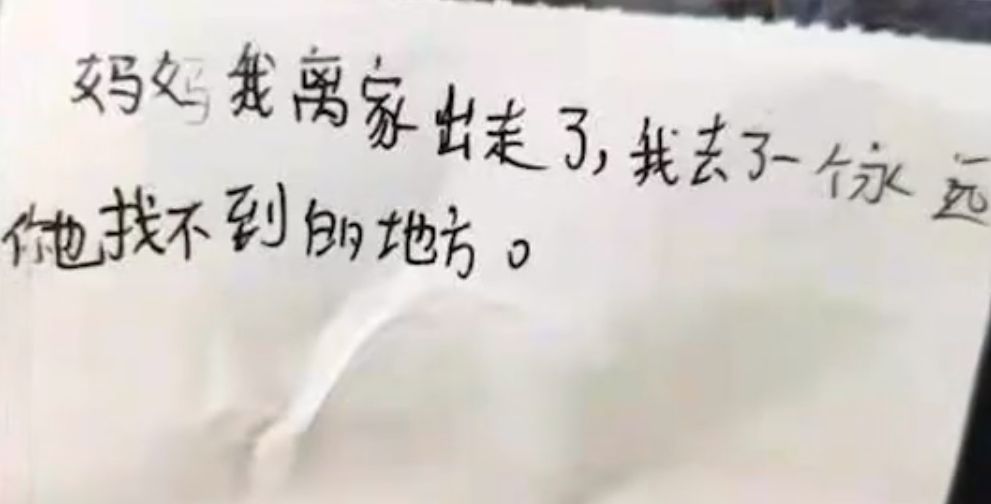 妈妈我离家出走了,我去了一个永远
你也找不到的地方。